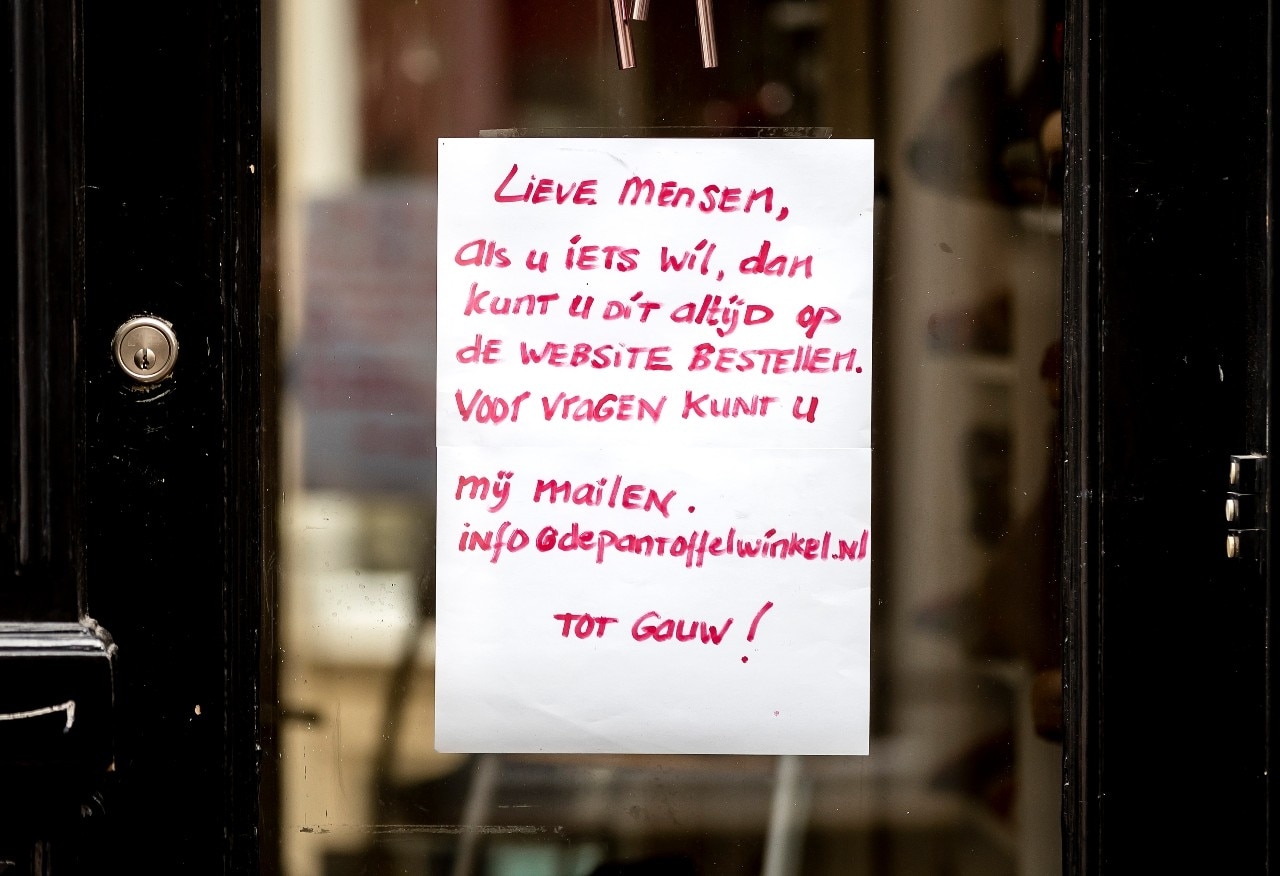 Lieve mensen,
Als u iets wil, dan
kunt u dit altijd op
de website bestellen.
Voor vragen kunt u
mij mailen.
info@depantoffelwinkel.nl
Tot gauw!